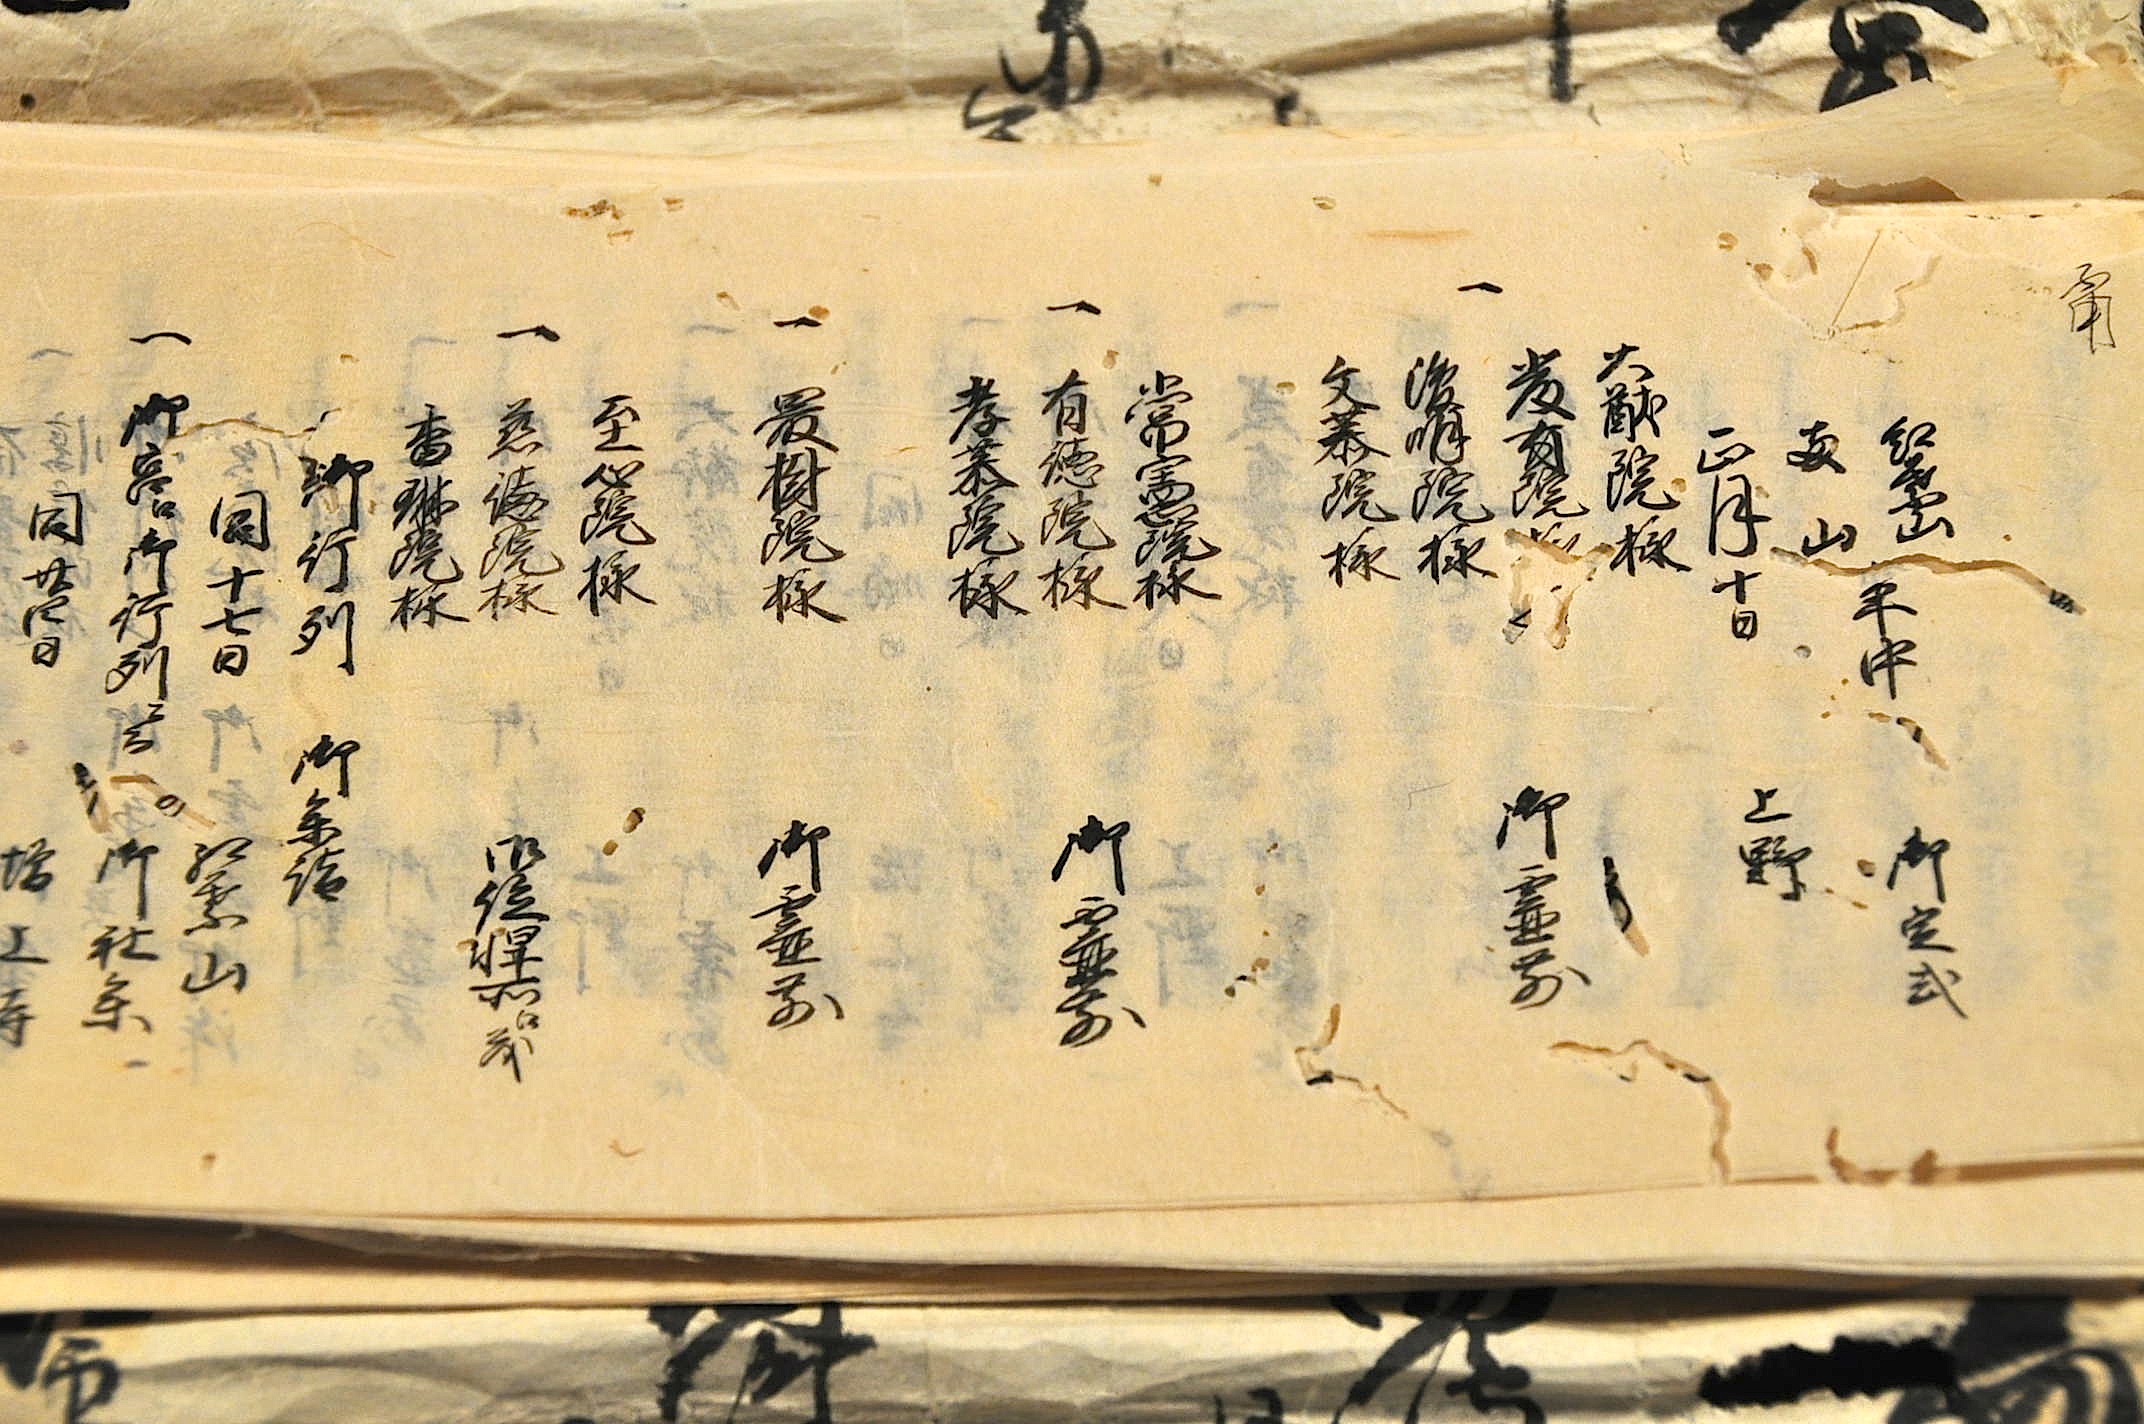 紅葉山 年中 御定式
両山
正月十日 上野
大猷院様
一 厳有院様 御霊前
浚明院様
文恭院様
常憲院様
一 有徳院様 御霊前
孝恭院様
一 最樹院様 御霊前
至心院様
一 慈徳院様 御位牌所
香琳院様
御行列 御参詣
同十七日 紅葉山
一 御宮御行列 御社参
同廿四日 増上寺